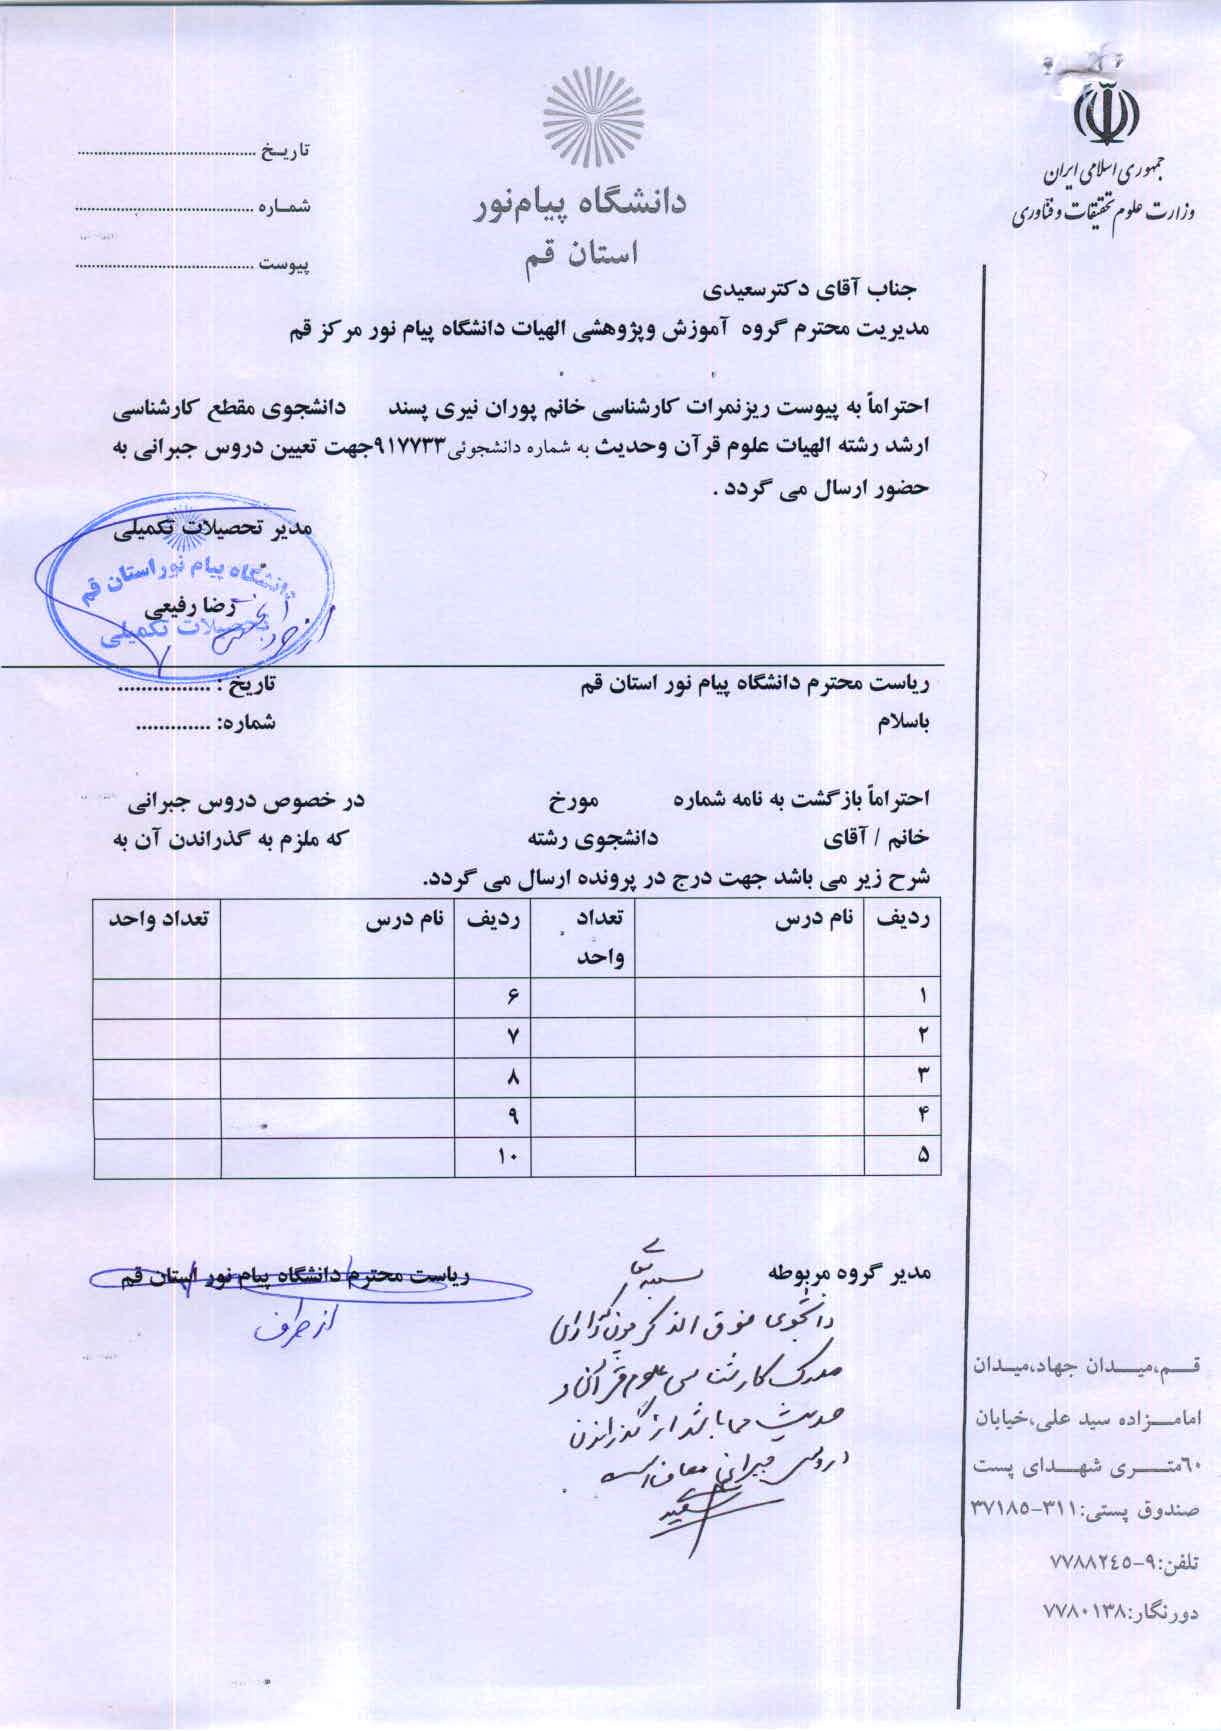 جمهوری اسلامی ایران
وزارت علوم تحقیقات و فناوری
دانشگاه پیام‌نور
استان قم
تاریـخ ........................................
شمـاره ........................................
پیوست ........................................
جناب آقای دکترسعیدی
مدیریت محترم گروه آموزش وپژوهشی الهیات دانشگاه پیام نور مرکز قم
احتراماً به پیوست ریزنمرات کارشناسی خانم پوران نیری پسند دانشجوی مقطع کارشناسی
ارشد رشته الهیات علوم قرآن وحدیث به شماره دانشجوئی ۹۱۷۷۳۳جهت تعیین دروس جبرانی به
حضور ارسال می گردد .
مدیر تحصیلات تکمیلی
دانشگاه پیام نور استان قم
رضا رفیعی
تحصیلات تکمیلی
ریاست محترم دانشگاه پیام نور استان قم تاریخ : ................
باسلام شماره: .............
احتراماً بازگشت به نامه شماره مورخ در خصوص دروس جبرانی
خانم / آقای دانشجوی رشته که ملزم به گذراندن آن به
شرح زیر می باشد جهت درج در پرونده ارسال می گردد.
ردیف نام درس تعداد واحد ردیف نام درس تعداد واحد
۱ ۶
۲ ۷
۳ ۸
۴ ۹
۵ ۱۰
مدیر گروه مربوطه ریاست محترم دانشگاه پیام نور استان قم
از طرف
بسمه تعالی
دانشجوی فوق الذکر چون دارای
مدرک کارشناسی علوم قرآن و
حدیث می باشد از گذراندن
دروس جبرانی معاف است
سعیدی
قـم،میـدان جهاد،میـدان
امامـزاده سید علی،خیابان
۶۰متـری شهـدای پست
صندوق پستی:۳۱۱-۳۷۱۸۵
تلفن:۹-۷۷۸۸۲٤٥
دورنگار:۷۷۸۰۱۳۸